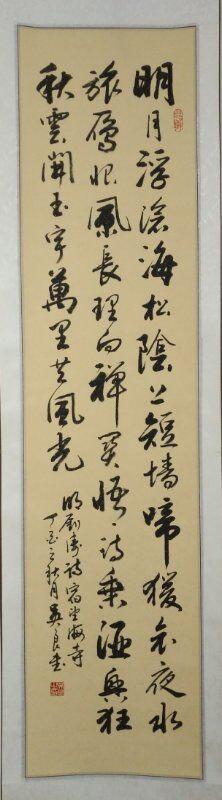 明月浮滄海松陰上短墻啼猨夜
旅雁風長理向禪關悟詩乘酒興狂
秋雲開玉宇萬里共風光
明劉詩宿望海寺
丁酉之秋月良書